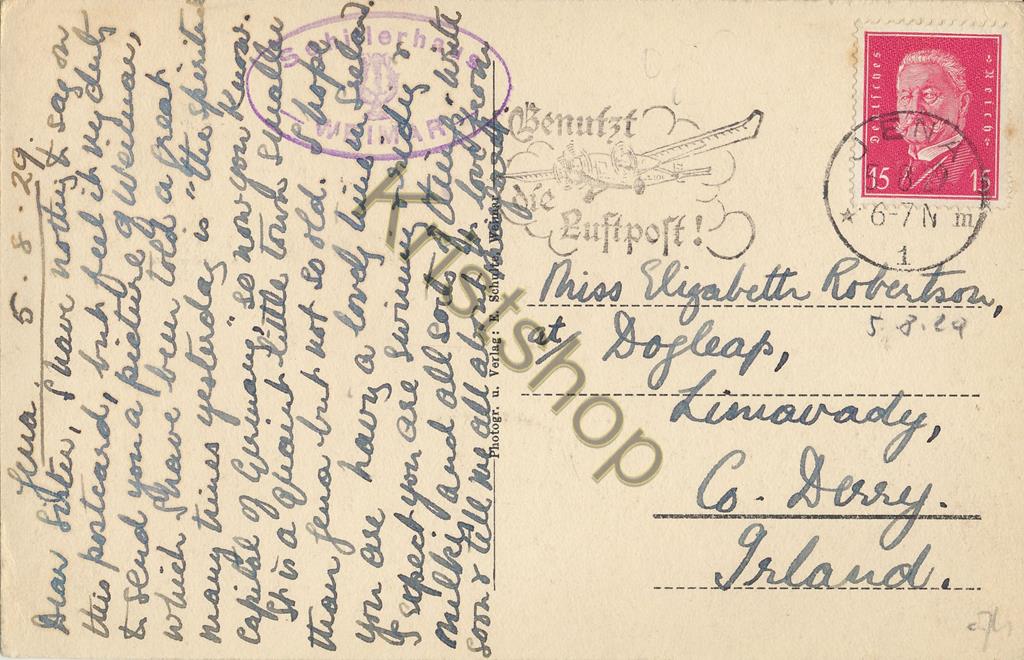 Jena 5. 8. 29
Dear Sister, I have nothing to say on
this postcard, but feel it my duty
to send you a picture of Weimar,
which I have been told a great
many times yesterday is "the spiritual
capital of Germany," so now you know.
It is a quaint little town smaller
than Jena but not so old. I hope
you are having a lovely time in Ireland.
I expect you are swimming &
milking and all sorts of things. Write
soon & tell me all about it. Love from
Schillerhaus
WEIMAR
Photogr. u. Verlag: E. Weimar
Benutzt
die
Luftpost!
Deutsches Reich
15 15
JENA
5.8.29
6-7 N m
1
Miss Elizabeth Robertson,
5.8.29
at Dogleap,
Limavady,
Co. Derry.
Irland.
Kristshop